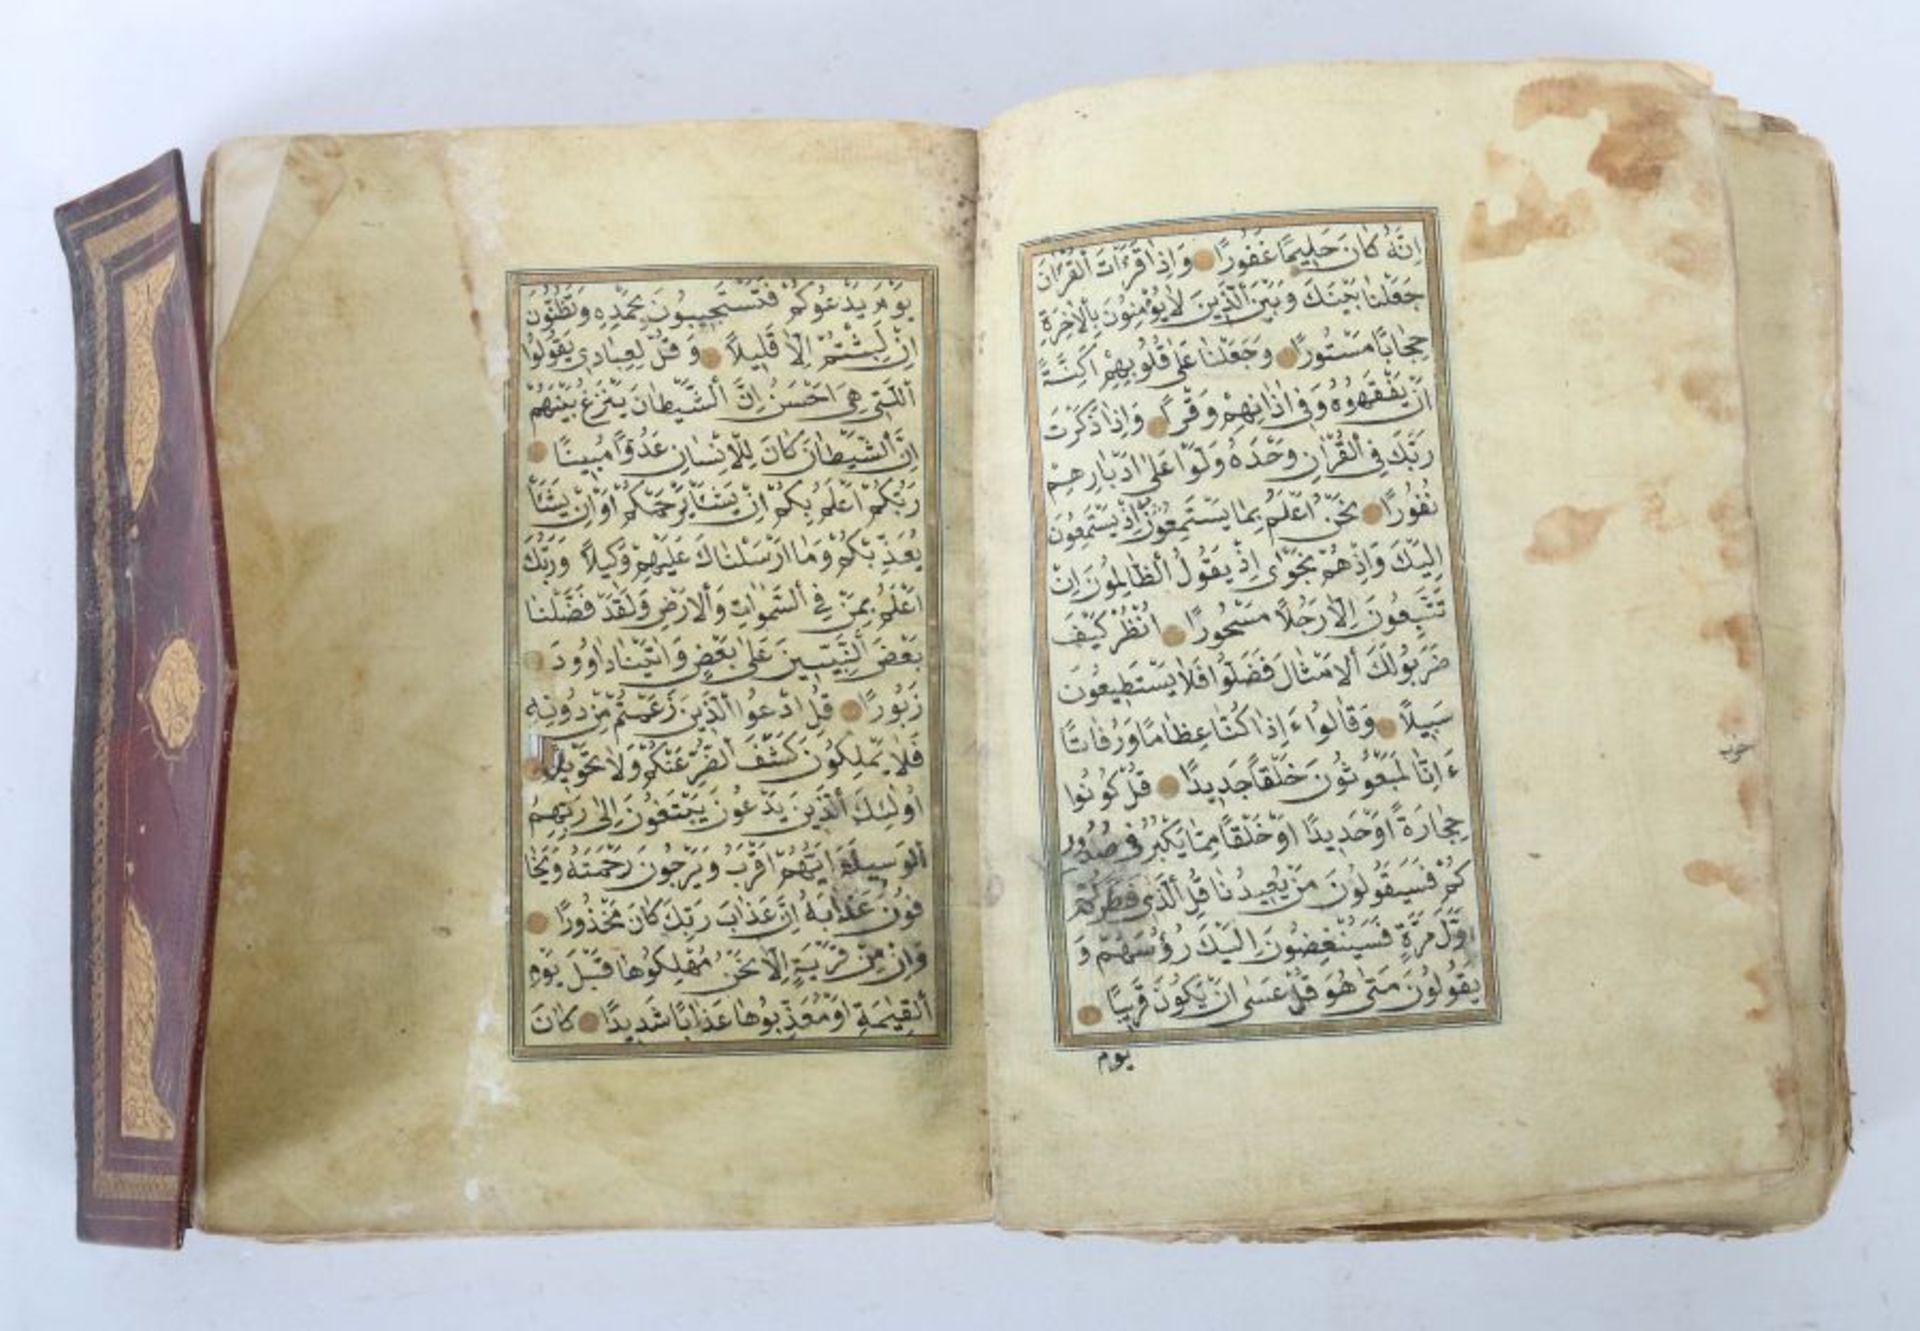 اِنَّهُ كَانَ حَلِيمًا غَفُورًا وَاِذَا قَرَأْتَ الْقُرْاٰنَ
جَعَلْنَا بَيْنَكَ وَبَيْنَ الَّذِينَ لَا يُؤْمِنُونَ بِالْاٰخِرَةِ
حِجَابًا مَسْتُورًا وَجَعَلْنَا عَلٰى قُلُوبِهِمْ اَكِنَّةً
اَنْ يَفْقَهُوهُ وَفِى اٰذَانِهِمْ وَقْرًا وَاِذَا ذَكَرْتَ
رَبَّكَ فِى الْقُرْاٰنِ وَحْدَهُ وَلَّوْا عَلٰى اَدْبَارِهِمْ
نُفُورًا نَحْنُ اَعْلَمُ بِمَا يَسْتَمِعُونَ اِذْ يَسْتَمِعُونَ
اِلَيْكَ وَاِذْ هُمْ نَجْوٰى اِذْ يَقُولُ الظَّالِمُونَ اِنْ
تَتَّبِعُونَ اِلَّا رَجُلًا مَسْحُورًا اُنْظُرْ كَيْفَ
ضَرَبُوا لَكَ الْاَمْثَالَ فَضَلُّوا فَلَا يَسْتَطِيعُونَ
سَبِيلًا وَقَالُوا ءَاِذَا كُنَّا عِظَامًا وَرُفَاتًا
ءَاِنَّا لَمَبْعُوثُونَ خَلْقًا جَدِيدًا قُلْ كُونُوا
حِجَارَةً اَوْ حَدِيدًا اَوْ خَلْقًا مِمَّا يَكْبُرُ فِى صُدُورِ
كُمْ فَسَيَقُولُونَ مَنْ يُعِيدُنَا قُلِ الَّذِى فَطَرَكُمْ
اَوَّلَ مَرَّةٍ فَسَيُنْغِضُونَ اِلَيْكَ رُؤُسَهُمْ وَ
يَقُولُونَ مَتٰى هُوَ قُلْ عَسٰى اَنْ يَكُونَ قَرِيبًا
يوم
يَوْمَ يَدْعُوكُمْ فَتَسْتَجِيبُونَ بِحَمْدِهِ وَتَظُنُّونَ
اِنْ لَبِثْتُمْ اِلَّا قَلِيلًا وَقُلْ لِعِبَادِى يَقُولُوا
الَّتِى هِىَ اَحْسَنُ اِنَّ الشَّيْطَانَ يَنْزَغُ بَيْنَهُمْ
اِنَّ الشَّيْطَانَ كَانَ لِلْاِنْسَانِ عَدُوًّا مُبِينًا
رَبُّكُمْ اَعْلَمُ بِكُمْ اِنْ يَشَأْ يَرْحَمْكُمْ اَوْ اِنْ يَشَأْ
يُعَذِّبْكُمْ وَمَا اَرْسَلْنَاكَ عَلَيْهِمْ وَكِيلًا وَرَبُّكَ
اَعْلَمُ بِمَنْ فِى السَّمٰوَاتِ وَالْاَرْضِ وَلَقَدْ فَضَّلْنَا
بَعْضَ النَّبِيّينَ عَلٰى بَعْضٍ وَاٰتَيْنَا دَاوُودَ
زَبُورًا قُلِ ادْعُوا الَّذِينَ زَعَمْتُمْ مِنْ دُونِهِ
فَلَا يَمْلِكُونَ كَشْفَ الضُّرِّ عَنْكُمْ وَلَا تَحْوِيلًا
اُولٰئِكَ الَّذِينَ يَدْعُونَ يَبْتَغُونَ اِلٰى رَبِّهِمُ
الْوَسِيلَةَ اَيُّهُمْ اَقْرَبُ وَيَرْجُونَ رَحْمَتَهُ وَيَخَا
فُونَ عَذَابَهُ اِنَّ عَذَابَ رَبِّكَ كَانَ مَحْذُورًا
وَاِنْ مِنْ قَرْيَةٍ اِلَّا نَحْنُ مُهْلِكُوهَا قَبْلَ يَوْمِ
الْقِيٰمَةِ اَوْ مُعَذِّبُوهَا عَذَابًا شَدِيدًا كَانَ